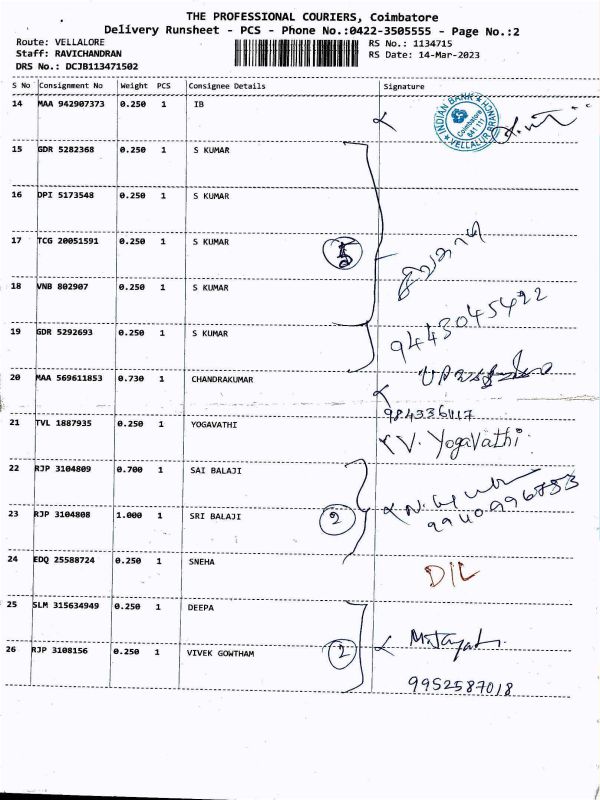 THE PROFESSIONAL COURIERS, Coimbatore
Delivery Runsheet - PCS - Phone No.:0422-3505555 - Page No.:2
Route: VELLALORE
RS No.: 1134715
Staff: RAVICHANDRAN
RS Date: 14-Mar-2023
DRS No.: DCJB113471502
S No Consignment No Weight PCS Consignee Details Signature
14 MAA 942907373 0.250 1 IB
INDIAN BANK
Coimbatore
641 111
VELLALUR BRANCH
15 GDR 5282368 0.250 1 S KUMAR
16 DPI 5173548 0.250 1 S KUMAR
17 TCG 20051591 0.250 1 S KUMAR
5
18 VNB 802907 0.250 1 S KUMAR
9443045422
19 GDR 5292693 0.250 1 S KUMAR
20 MAA 569611853 0.730 1 CHANDRAKUMAR
984336117
21 TVL 1887935 0.250 1 YOGAVATHI
V. Yogavathi
22 RJP 3104809 0.700 1 SAI BALAJI
23 RJP 3104808 1.000 1 SRI BALAJI
2
9940996753
24 EDQ 25588724 0.250 1 SNEHA
D/L
25 SLM 315634949 0.250 1 DEEPA
26 RJP 3108156 0.250 1 VIVEK GOWTHAM
2
9952587018